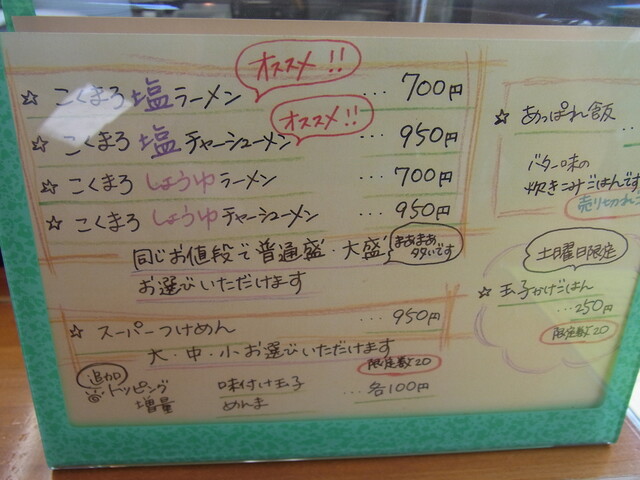 オススメ!!
☆ こくまろ塩ラーメン ... 700円
オススメ!!
☆ こくまろ塩チャーシューメン ... 950円
☆ こくまろしょうゆラーメン ... 700円
☆ こくまろしょうゆチャーシューメン ... 950円
同じお値段で普通盛・大盛
お選びいただけます
まあまあ
タタいです
☆ スーパーつけめん ... 950円
大・中・小お選びいただけます
限定数20
追加
トッピング
増量
味付け玉子
めんま
... 各100円
☆ あっぱれ飯 ...
バター味の
炊きこみごはんです
売り切れ
土曜日限定
☆ 玉子かけごはん
... 250円
限定数20